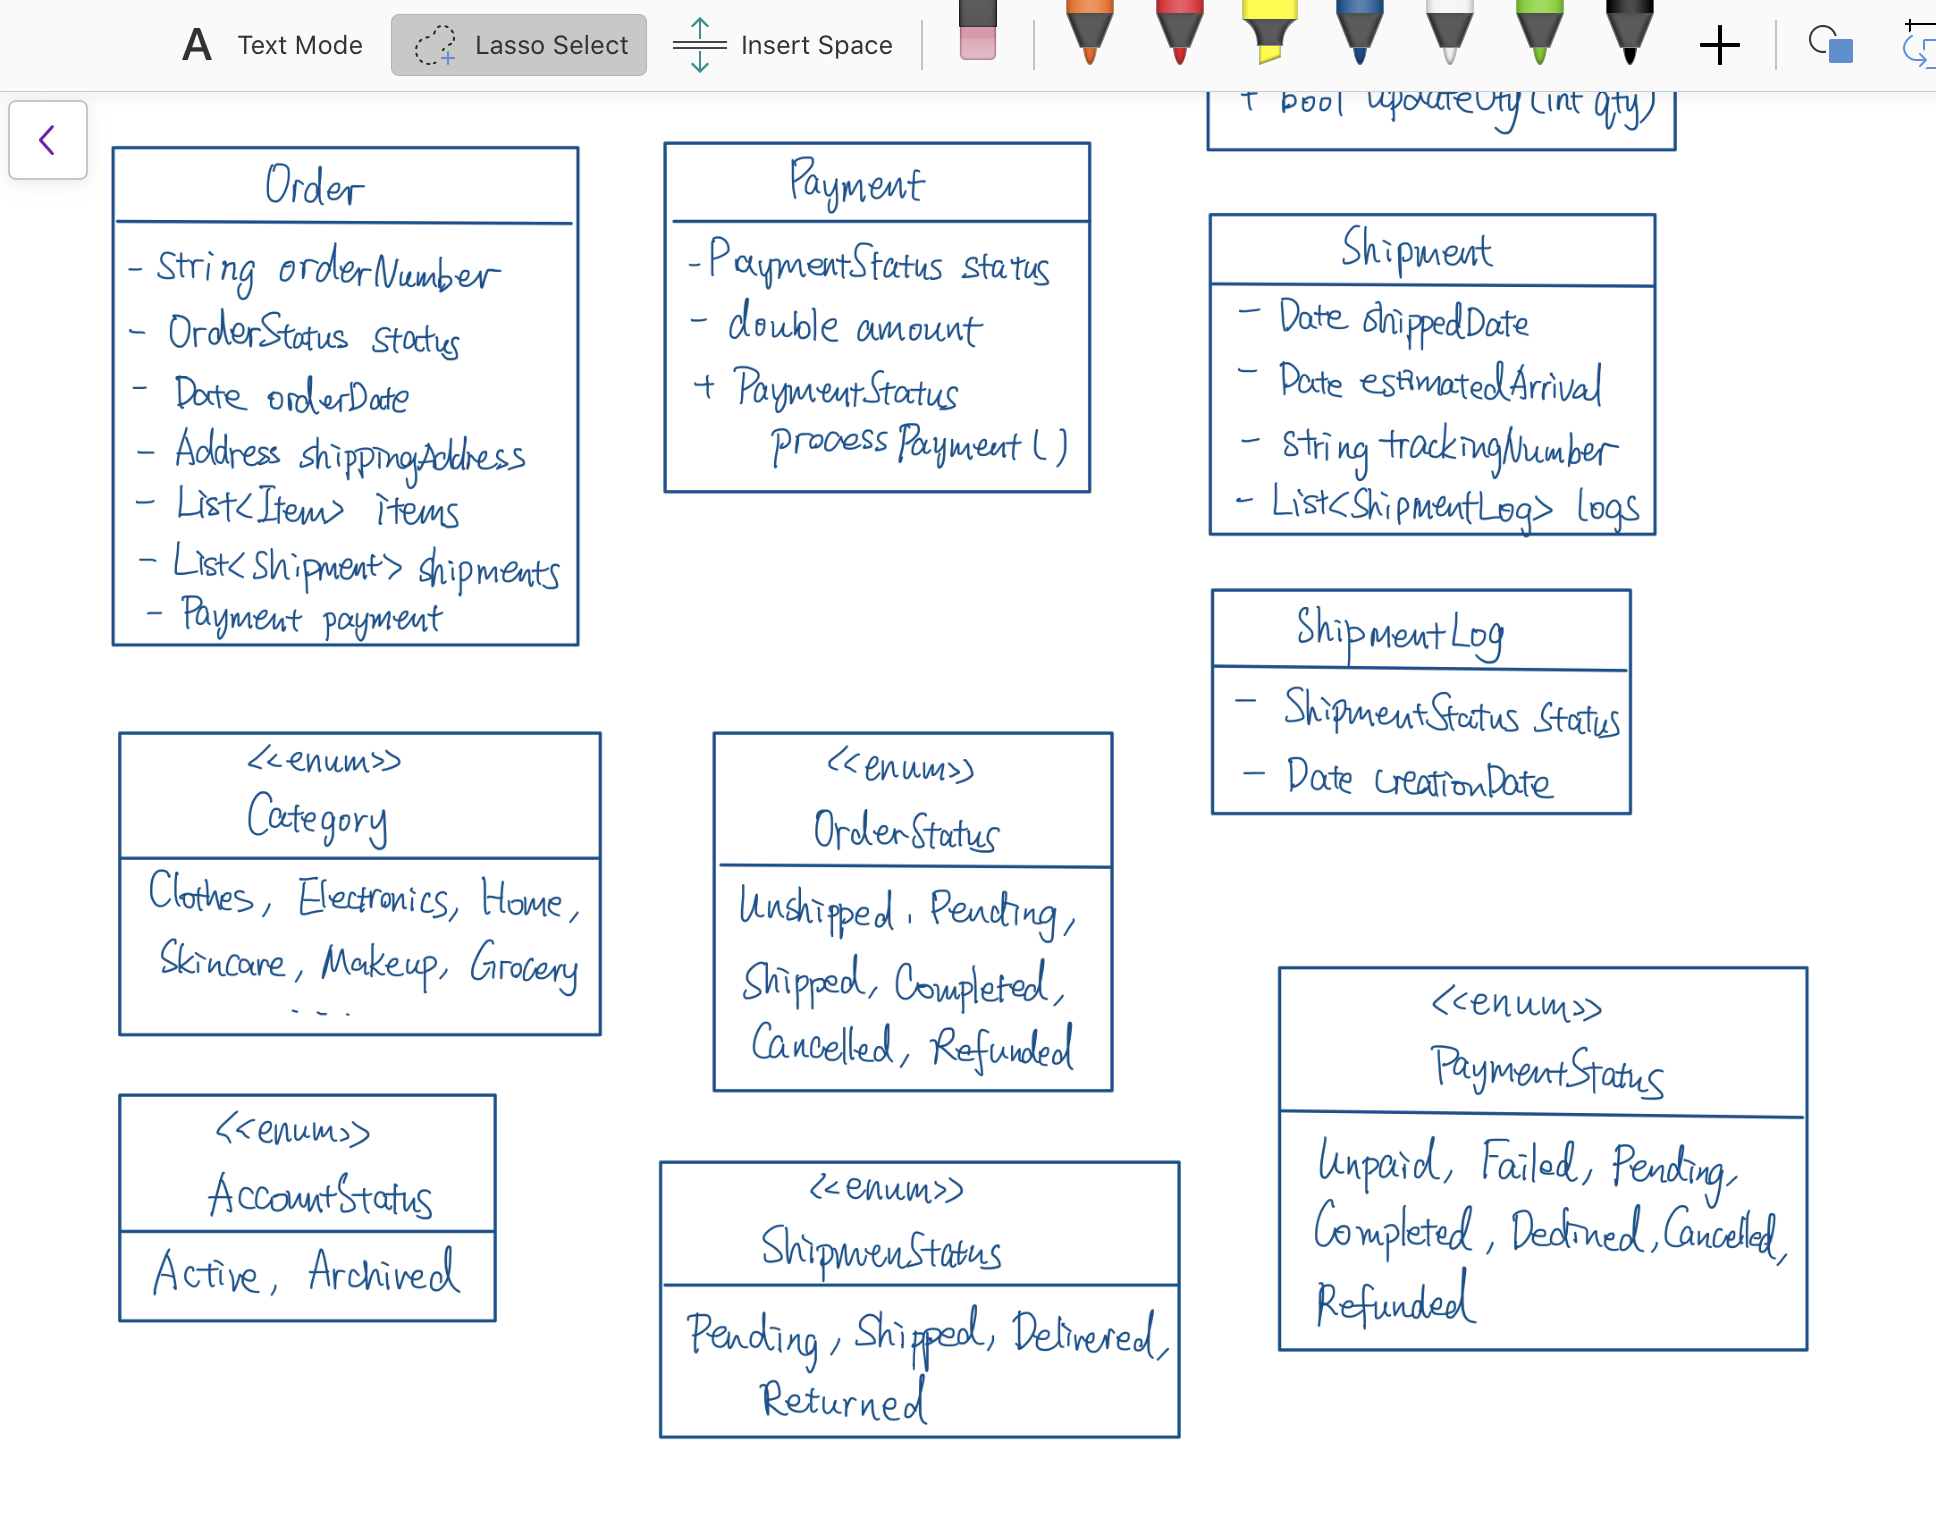 Text Mode
Lasso Select
Insert Space
+ bool updateQty(int qty)
Order
- String orderNumber
- OrderStatus status
- Date orderDate
- Address shippingAddress
- List<Item> items
- List<Shipment> shipments
- Payment payment
Payment
- PaymentStatus status
- double amount
+ PaymentStatus
processPayment()
Shipment
- Date shippedDate
- Date estimatedArrival
- string trackingNumber
- List<ShipmentLog> logs
ShipmentLog
- ShipmentStatus status
- Date creationDate
<<enum>>
Category
Clothes, Electronics, Home,
Skincare, Makeup, Grocery
...
<<enum>>
OrderStatus
Unshipped, Pending,
Shipped, Completed,
Cancelled, Refunded
<<enum>>
AccountStatus
Active, Archived
<<enum>>
ShipmenStatus
Pending, Shipped, Delivered,
Returned
<<enum>>
PaymentStatus
Unpaid, Failed, Pending,
Completed, Declined, Cancelled,
Refunded